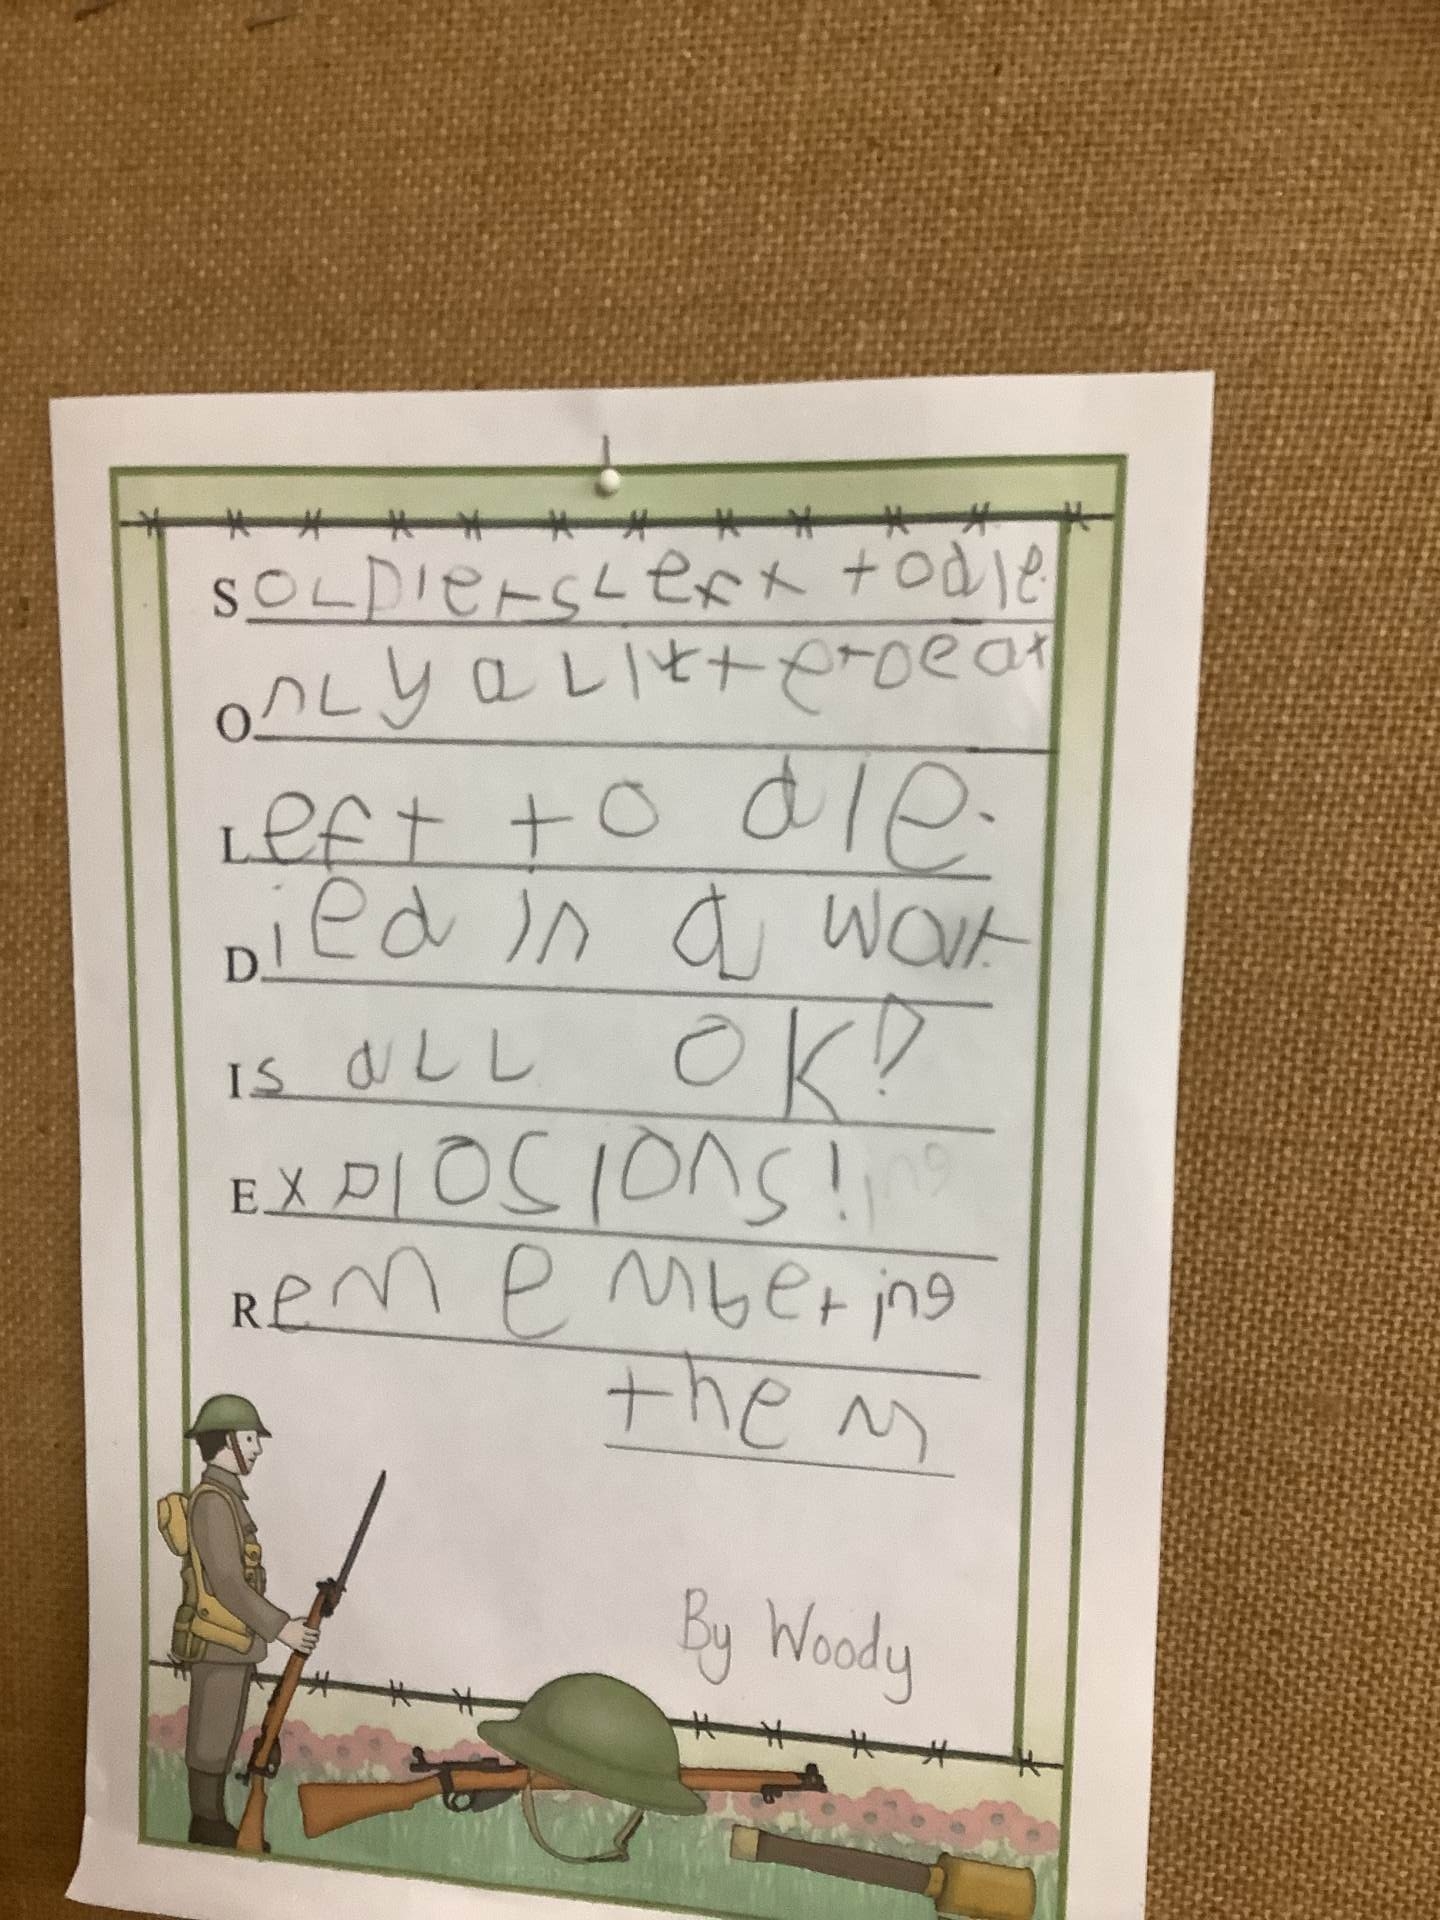 SOLDIers Left to die.
Only a Litter oeat
Left to die.
Died in a war.
Is aLL OK?
Explosions!
Remembering
them
By Woody